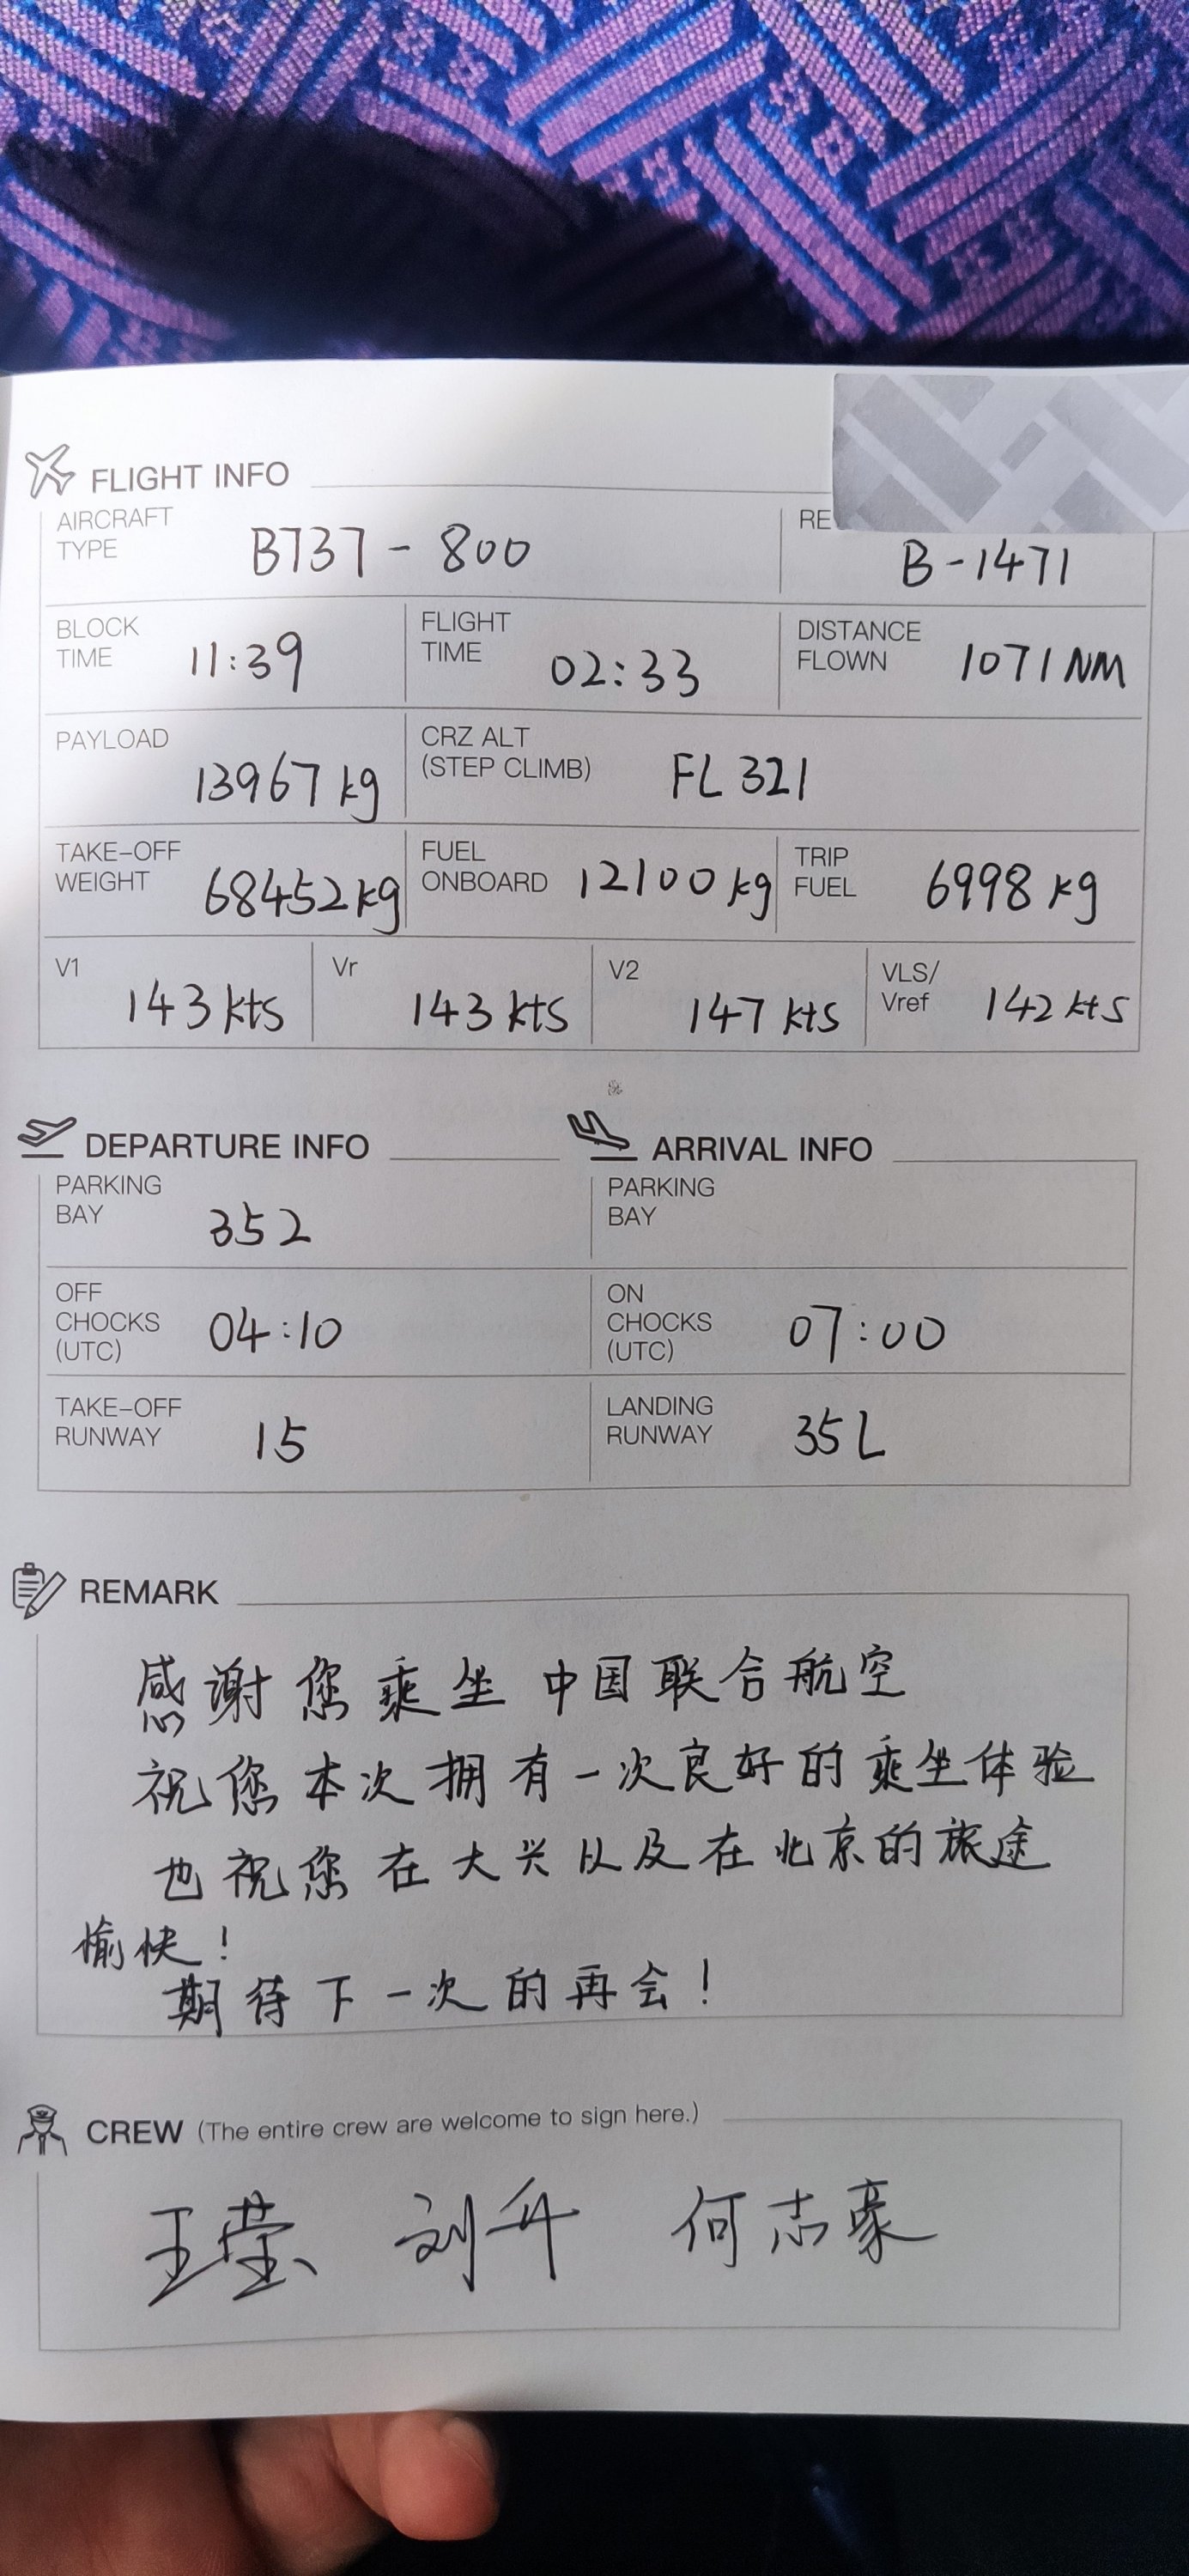 FLIGHT INFO
AIRCRAFT TYPE B737-800 RE B-1471
BLOCK TIME 11:39 FLIGHT TIME 02:33 DISTANCE FLOWN 1071NM
PAYLOAD 13967kg CRZ ALT (STEP CLIMB) FL321
TAKE-OFF WEIGHT 68452kg FUEL ONBOARD 12100kg TRIP FUEL 6998kg
V1 143kts Vr 143kts V2 147kts VLS/Vref 142kts
DEPARTURE INFO ARRIVAL INFO
PARKING BAY 352 PARKING BAY
OFF CHOCKS (UTC) 04:10 ON CHOCKS (UTC) 07:00
TAKE-OFF RUNWAY 15 LANDING RUNWAY 35L
REMARK
感谢您乘坐中国联合航空
祝您本次拥有一次良好的乘坐体验
也祝您在大兴以及在北京的旅途
愉快！
期待下一次的再会！
CREW (The entire crew are welcome to sign here.)
王莹 刘升 何志豪